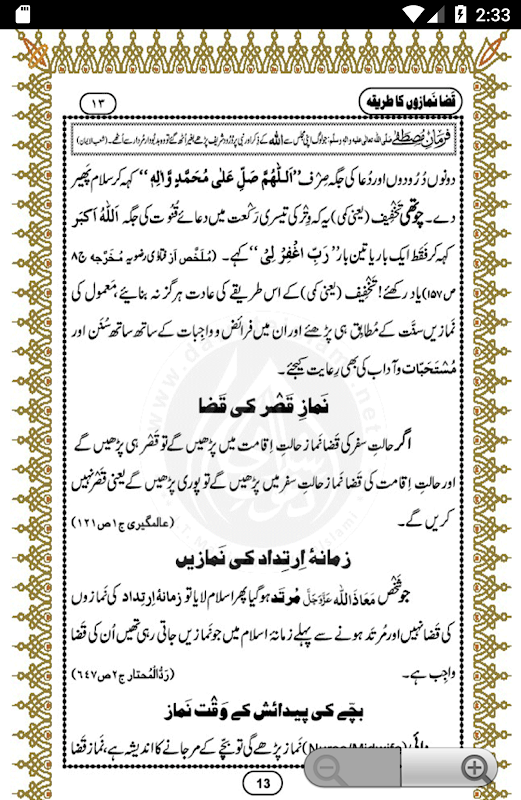 2:33
قَضا نَمازوں کا طریقہ
۱۳
فرمانِ مصطفےٰ صلی اللہ تعالیٰ علیہ والہ وسلم: جو لوگ اپنی مجلس سے اللہ کے ذکر اور نبی پر دُرُود شریف پڑھے بغیر اُٹھ گئے تو وہ بدبودار مردار سے اُٹھے۔ (شعب الایمان)
دونوں دُرُودوں اور دُعا کی جگہ صِرْف ”اَللّٰهُمَّ صَلِّ عَلٰی مُحَمَّدٍ وَّاٰلِهٖ“ کہہ کر سلام پھیر
دے۔ چوتھی تَخْفِیف (یعنی کمی) یہ کہ وِتْر کی تیسری رَکْعت میں دعائے قُنُوت کی جگہ اَللّٰهُ اَکبَر
کہہ کر فقط ایک بار یا تین بار ”رَبِّ اغْفِرْ لِیْ“ کہے۔ (مُلَخَّص اَز فتاوٰی رضویہ مُخَرَّجہ ج۸
ص۱۵۷) یاد رکھئے! تَخْفِیف (یعنی کمی) کے اس طریقے کی عادت ہرگز نہ بنائیے، مَعمول کی
نَمازیں سنَّت کے مُطابِق ہی پڑھئے اور ان میں فرائض و واجِبات کے ساتھ ساتھ سُنَن اور
مُسْتَحَبّات و آداب کی بھی رِعایت کیجئے۔
نَمازِ قَصْر کی قَضا
اگر حالتِ سفر کی قَضا نَماز حالتِ اِقامت میں پڑھیں گے تو قَصْر ہی پڑھیں گے
اور حالتِ اِقامت کی قَضا نَماز حالتِ سفر میں پڑھیں گے تو پوری پڑھیں گے یعنی قَصْر نہیں
کریں گے۔ (عالمگیری ج۱ ص۱۲۱)
زمانۂ اِرتِداد کی نَمازیں
جو شَخْص مَعَاذَاللّٰه عَزَّوَجَلَّ مُرتَد ہو گیا پھر اسلام لایا تو زمانۂ اِرتِداد کی نَمازوں
کی قَضا نہیں اور مُرتَد ہونے سے پہلے زمانۂ اسلام میں جو نَمازیں جاتی رہی تھیں اُن کی قَضا
واجِب ہے۔ (رَدُّالْمُحتار ج۲ ص۶۴۷)
بچّے کی پیدائش کے وَقْت نَماز
دائی (Nurse/Midwife) نَماز پڑھے گی تو بچّے کے مر جانے کا اندیشہ ہے، نَماز قَضا
13